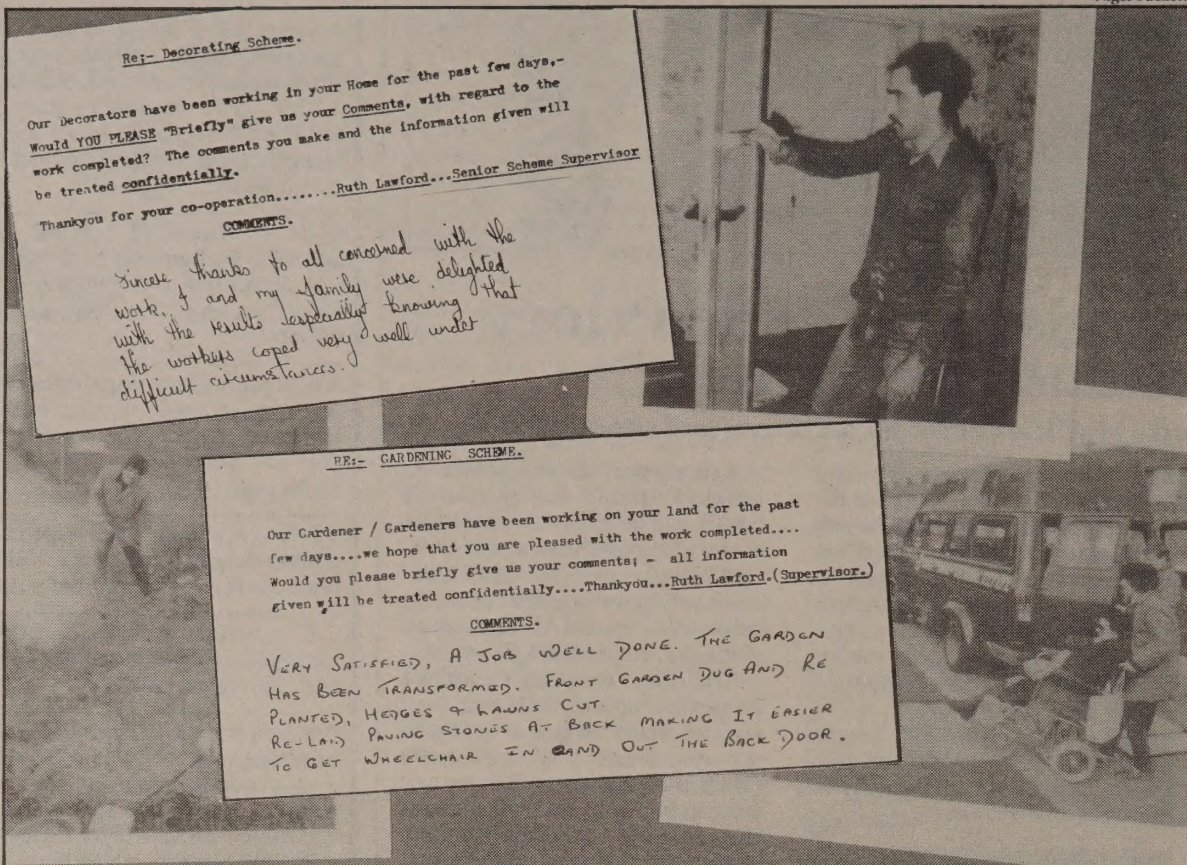 Re;- Decorating Scheme.
Our Decorators have been working in your Home for the past few days,-
Would YOU PLEASE "Briefly" give us your Comments, with regard to the
work completed? The comments you make and the information given will
be treated confidentially.
Thankyou for your co-operation........Ruth Lawford...Senior Scheme Supervisor
COMMENTS.
Sincere thanks to all concerned with the
work, I and my family were delighted
with the results especially knowing that
the workers coped very well under
difficult circumstances.
RE:- GARDENING SCHEME.
Our Gardener / Gardeners have been working on your land for the past
few days....we hope that you are pleased with the work completed....
Would you please briefly give us your comments; - all information
given will be treated confidentially....Thankyou...Ruth Lawford.(Supervisor.)
COMMENTS.
VERY SATISFIED, A JOB WELL DONE. THE GARDEN
HAS BEEN TRANSFORMED. FRONT GARDEN DUG AND RE
PLANTED, HEDGES & LAWNS CUT.
RE-LAID PAVING STONES AT BACK MAKING IT EASIER
TO GET WHEELCHAIR IN AND OUT THE BACK DOOR.